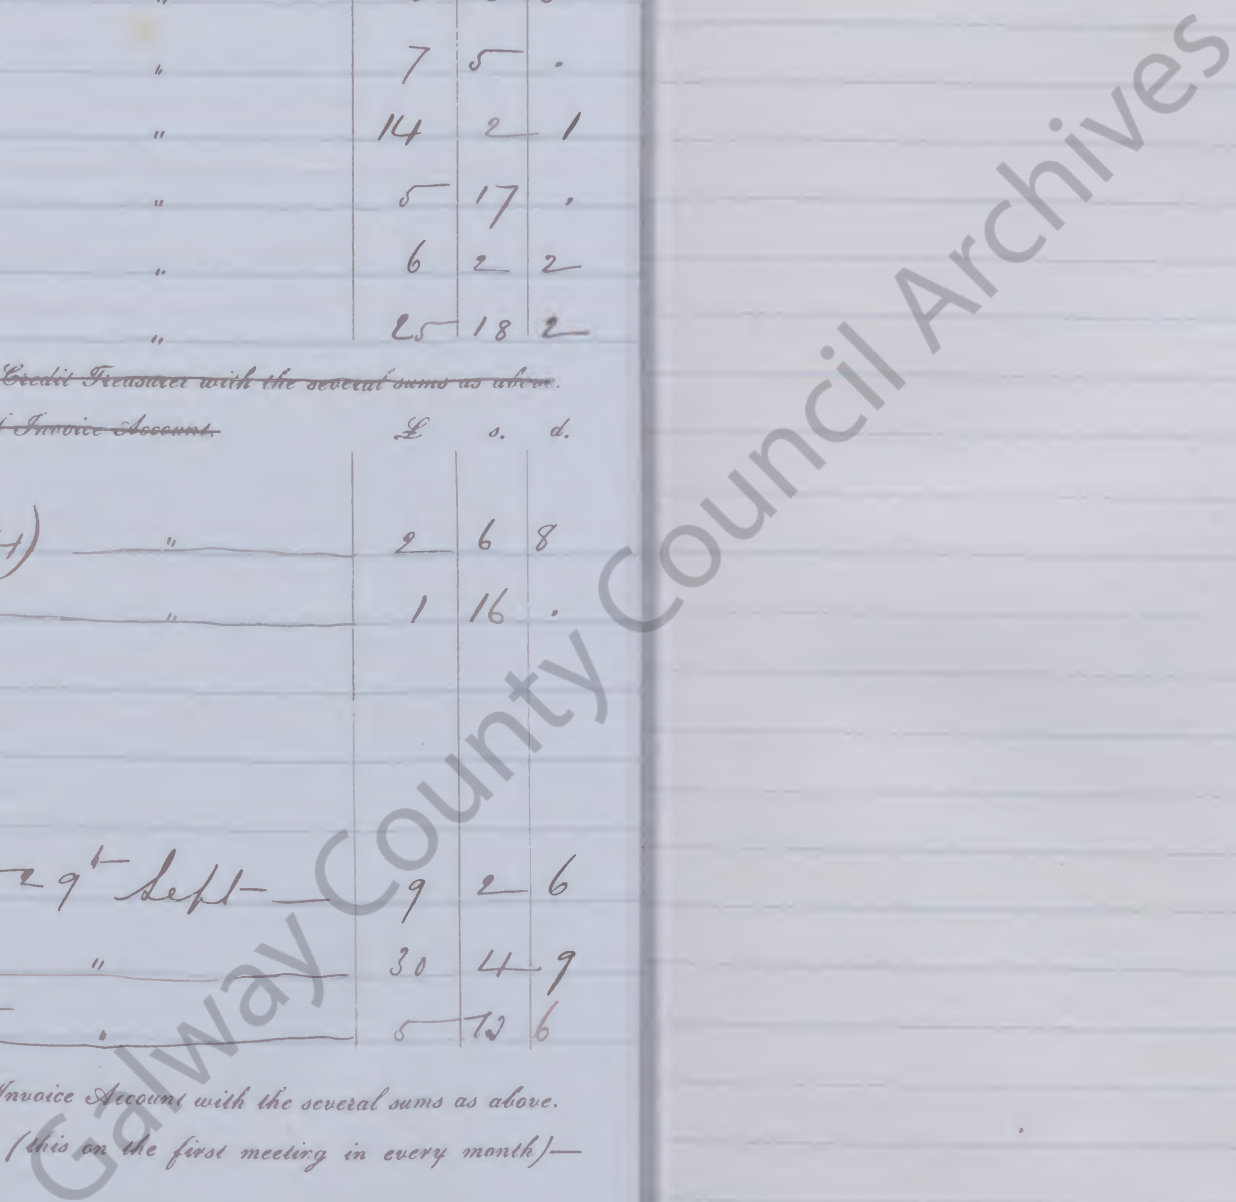 " 7 5 .
" 14 2 1
" 5 17 .
" 6 2 2
" 25 18 2
Credit Treasurer with the several sums as above.
Invoice Account. £ s. d.
" 2 6 8
" 1 16 .
29th Sept 9 2 6
" 30 4 9
" 5 12 6
Invoice Account with the several sums as above.
(this on the first meeting in every month)—
Galway County Council Archives